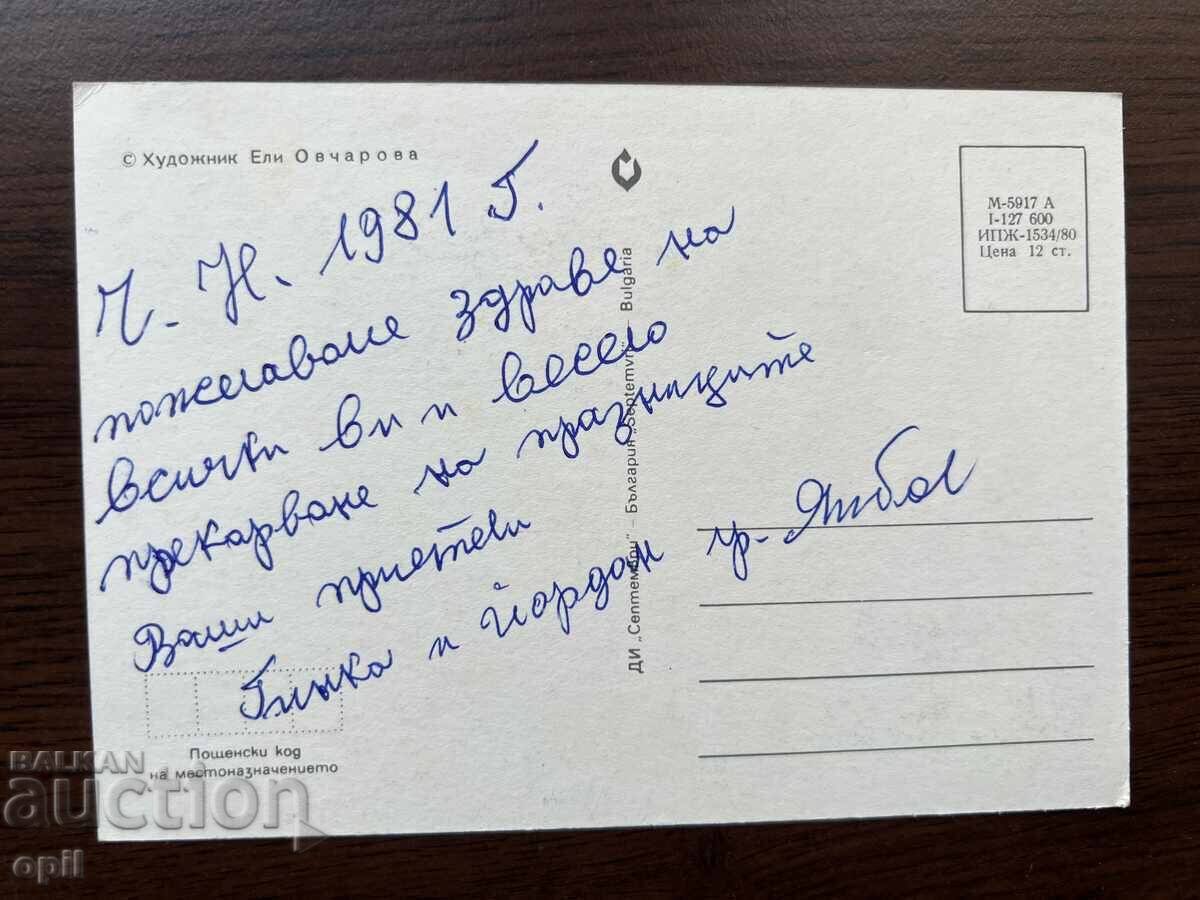 © Художник Ели Овчарова
Ч. Н. 1981 Г.
пожелаваме здраве на
всички ви и весело
прекарване на празниците
Ваши приятели
Гинка и Йордан гр. Ямбол
Пощенски код
на местоназначението
ДИ „Септември" – България „Septemvri" – Bulgaria
М-5917 А
I-127 600
ИПЖ-1534/80
Цена 12 ст.
BALKAN
auction
opil